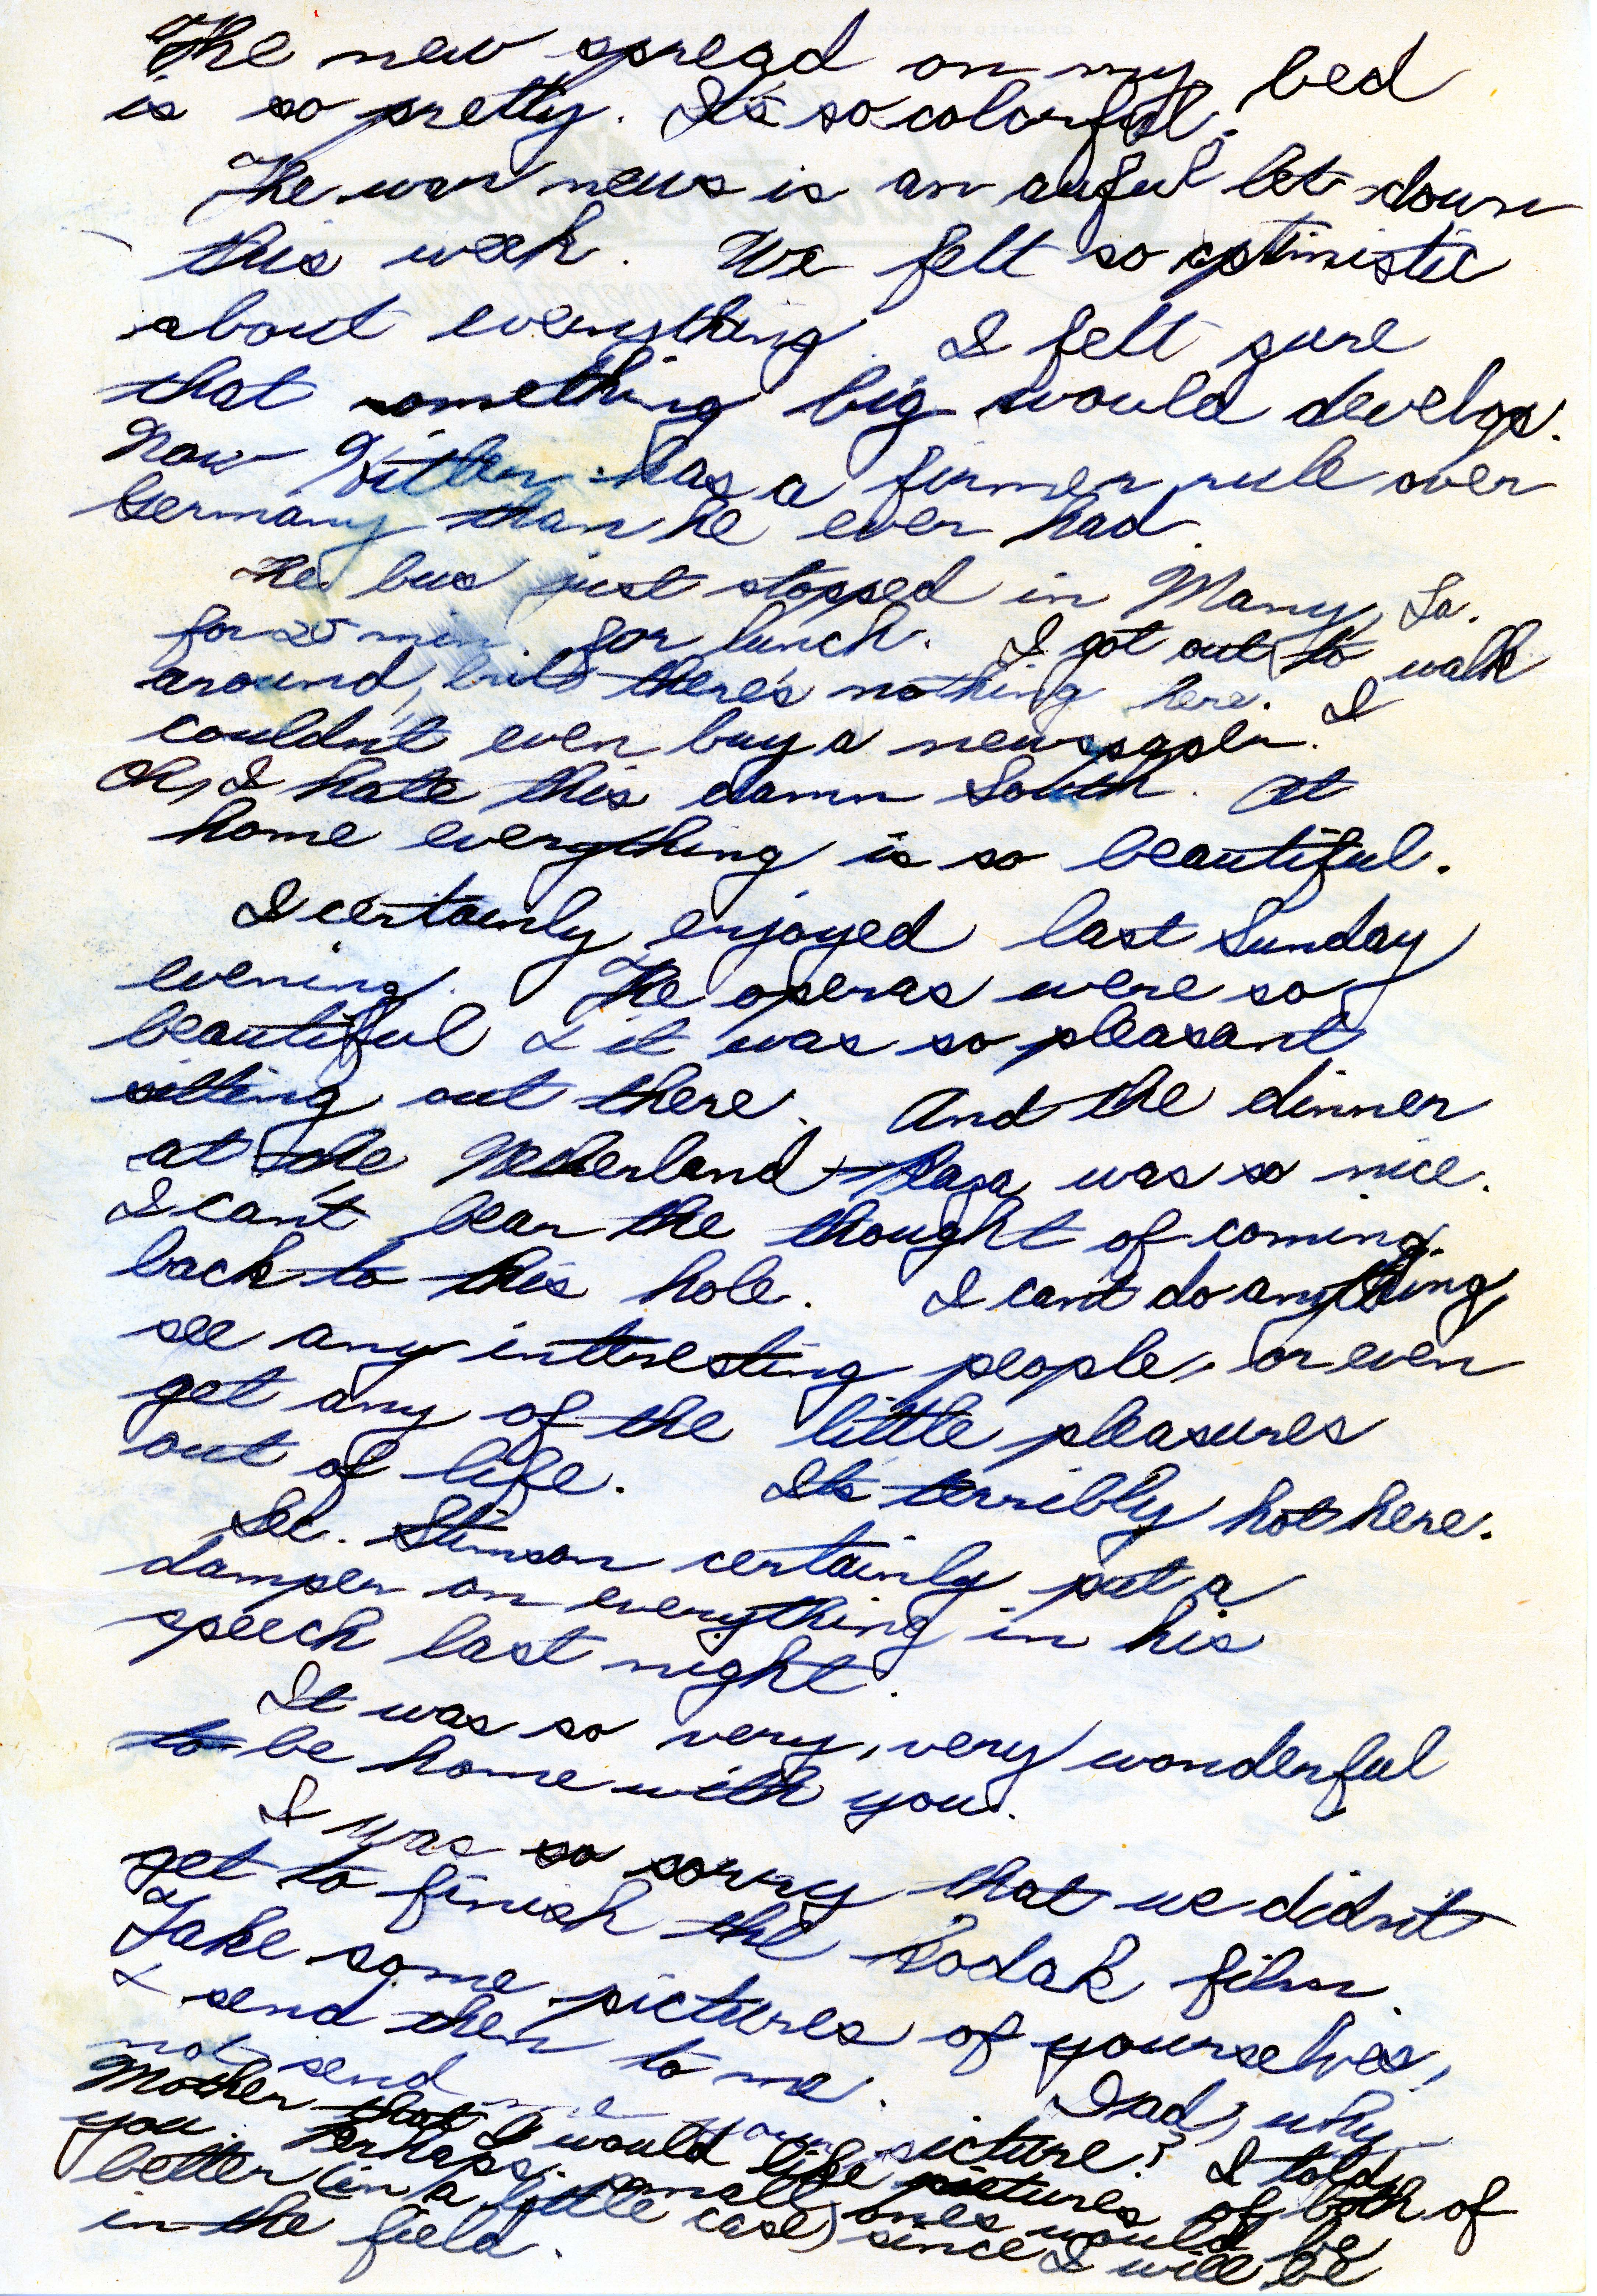 The new spread on my bed
is so pretty. It's so colorful.
The war news is an awful let down
this week. We felt so optimistic
about everything. I felt sure
that something big would develop.
Now Hitler has a firmer rule over
Germany than he ever had.
The bus just stopped in Many, La.
for 25 min. for lunch. I got out to walk
around, but there's nothing here. I
couldn't even buy a newspaper.
Oh, I hate this damn South. At
home everything is so beautiful.
I certainly enjoyed last Sunday
evening. The operas were so
beautiful & it was so pleasant
sitting out there. And the dinner
at the Netherland Plaza was so nice.
I can't bear the thought of coming
back to this hole. I can't do anything,
see any interesting people, or even
get any of the little pleasures
out of life. It's terribly hot here.
Sec. Stimson certainly put a
damper on everything in his
speech last night.
It was so very, very wonderful
to be home with you.
I was so sorry that we didn't
get to finish the Kodak film.
Take some pictures of yourselves,
& send them to me. Dad, why
not send me your picture? I told
Mother that I would like pictures of both of
you. Perhaps small ones would be
better (in a little case) since I will be
in the field.